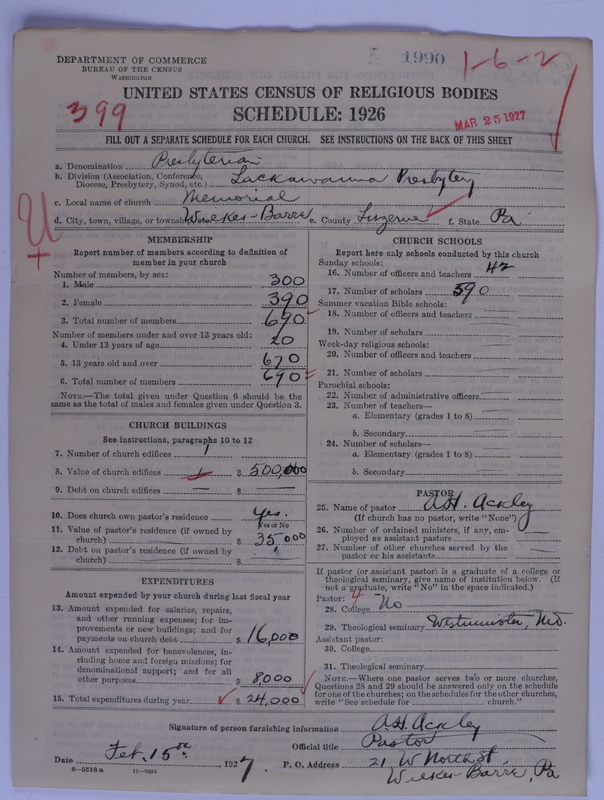 DEPARTMENT OF COMMERCE
BUREAU OF THE CENSUS
WASHINGTON
1990
1-6-2
UNITED STATES CENSUS OF RELIGIOUS BODIES
399
SCHEDULE: 1926
MAR 25 1927
FILL OUT A SEPARATE SCHEDULE FOR EACH CHURCH. SEE INSTRUCTIONS ON THE BACK OF THIS SHEET
a. Denomination Presbyterian
b. Division (Association, Conference,
Diocese, Presbytery, Synod, etc.) Lackawanna Presbytery
c. Local name of church Memorial
d. City, town, village, or township Wilkes-Barre e. County Luzerne f. State Pa
U
+
MEMBERSHIP
Report number of members according to definition of
member in your church
Number of members, by sex:
1. Male 300
2. Female 390
3. Total number of members 690
Number of members under and over 13 years old:
4. Under 13 years of age 20
5. 13 years old and over 670
6. Total number of members 690
NOTE.—The total given under Question 6 should be the
same as the total of males and females given under Question 3.
CHURCH BUILDINGS
See instructions, paragraphs 10 to 12
7. Number of church edifices 1
8. Value of church edifices 1 $ 500,000
9. Debt on church edifices — $ —
10. Does church own pastor's residence Yes.
Yes or No
11. Value of pastor's residence (if owned by
church) $ 35000
12. Debt on pastor's residence (if owned by
church) $
EXPENDITURES
Amount expended by your church during last fiscal year
13. Amount expended for salaries, repairs,
and other running expenses; for im-
provements or new buildings; and for
payments on church debt $ 16,000
14. Amount expended for benevolences, in-
cluding home and foreign missions; for
denominational support; and for all
other purposes $ 8,000
15. Total expenditures during year $ 24,000
CHURCH SCHOOLS
Report here only schools conducted by this church
Sunday schools:
16. Number of officers and teachers 42
17. Number of scholars 590
Summer vacation Bible schools:
18. Number of officers and teachers
19. Number of scholars
Week-day religious schools:
20. Number of officers and teachers
21. Number of scholars
Parochial schools:
22. Number of administrative officers
23. Number of teachers—
a. Elementary (grades 1 to 8)
b. Secondary
24. Number of scholars—
a. Elementary (grades 1 to 8)
b. Secondary
PASTOR
25. Name of pastor A.H. Ackley
(If church has no pastor, write "None")
26. Number of ordained ministers, if any, em-
ployed as assistant pastors
27. Number of other churches served by the
pastor or his assistants
If pastor (or assistant pastor) is a graduate of a college or
theological seminary, give name of institution below. (If
not a graduate, write "No" in the space indicated.)
Pastor: 4
28. College No
29. Theological seminary Westminster, Md.
Assistant pastor:
30. College
31. Theological seminary
NOTE.—Where one pastor serves two or more churches,
Questions 28 and 29 should be answered only on the schedule
for one of the churches; on the schedules for the other churches,
write "See schedule for church."
Signature of person furnishing information A.H. Ackley
Official title Pastor
Date Feb. 15th 1927. P. O. Address 21 W North St.
Wilkes-Barre, Pa
8-5518 a 11-9554